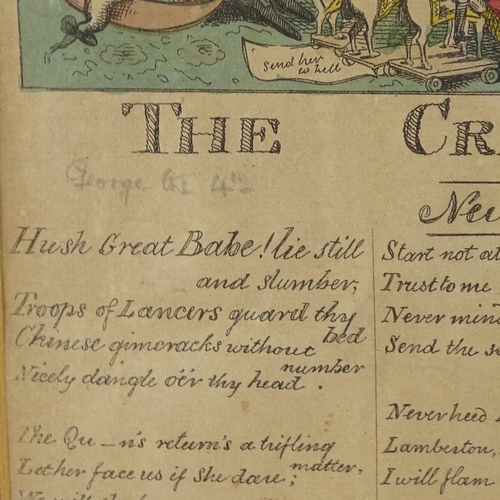 Send her
to hell
THE CR
George the 4th
New
Hush Great Babe! lie still
and slumber;
Troops of Lancers guard thy
bed
Chinese gimcracks without
number
Nicely dangle o'er thy head.
The Qu—n's return's a trifling
matter,
Let her face us if she dare;
Start not at
Trust to me
Never mind
Send the
Never heed
Lamberton,
I will flam